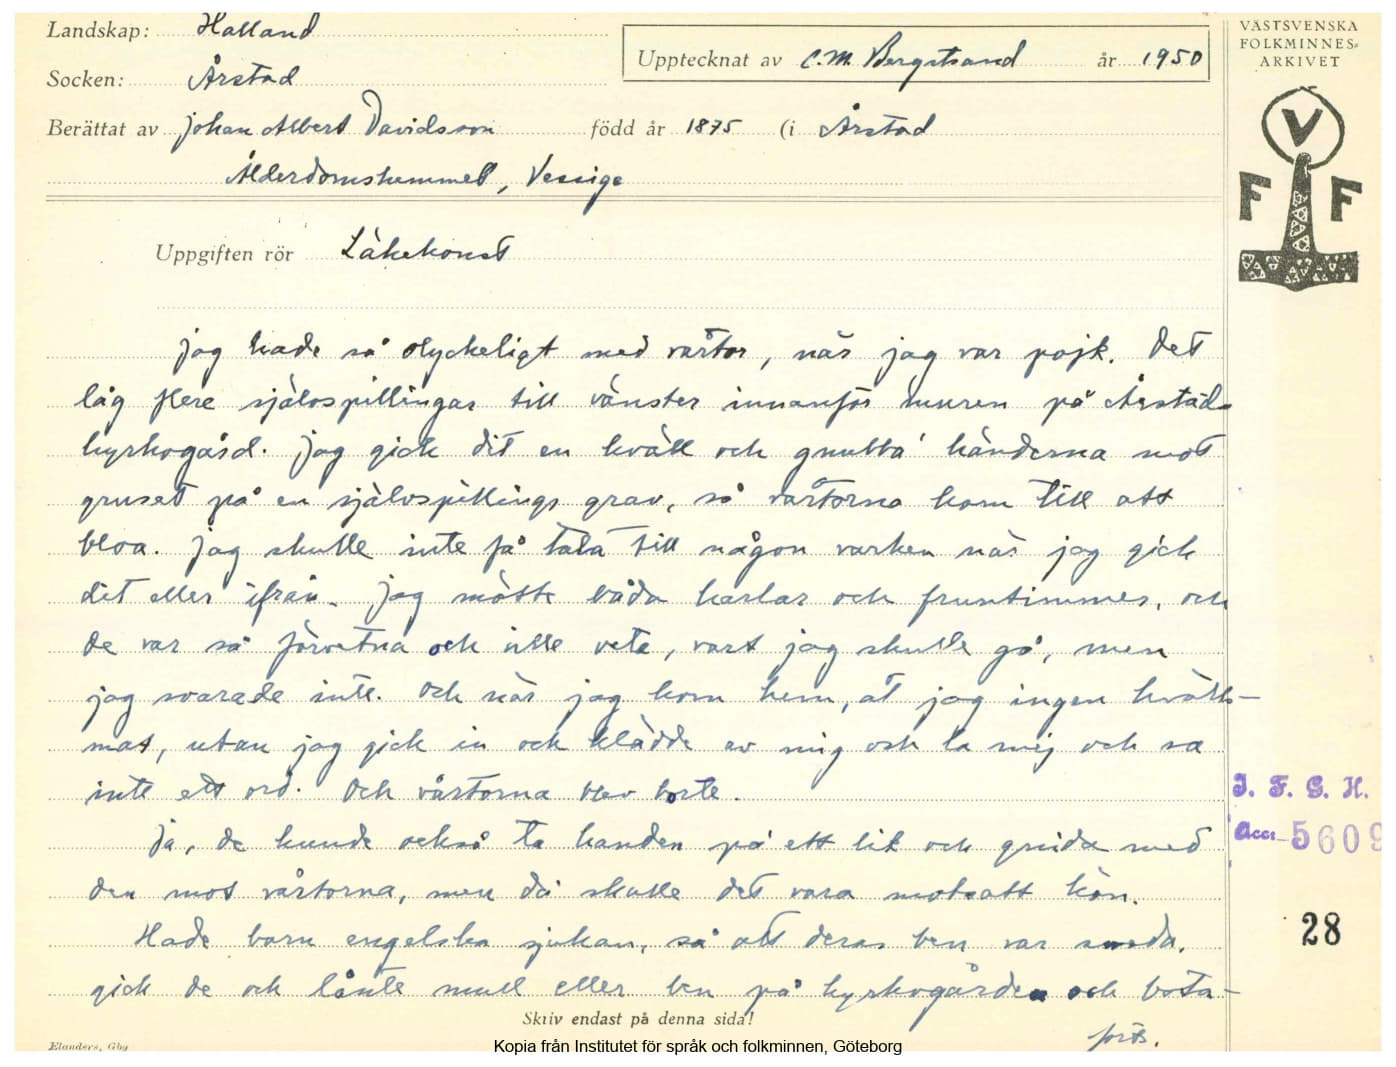 Landskap: Halland
Socken: Årstad
Upptecknat av C.M. Bergstrand år 1950
Berättat av Johan Albert Davidsson född år 1875 (i Årstad
Ålderdomshemmet, Vessige
VÄSTSVENSKA
FOLKMINNES-
ARKIVET
V
F F
Uppgiften rör Läkekonst
Jag hade så olyckeligt med vårtor, när jag var pojk. Det
låg flere självspillingar till vänster innanför muren på Årstads
kyrkogård. Jag gick dit en kväll och gnubba' händerna mot
gruset på en självspillings grav, så vårtorna kom till att
bloa. Jag skulle inte få tala till någon varken när jag gick
dit eller ifrån. Jag mötte båda karlar och fruntimmer, och
de var så förvetna och ville veta, vart jag skulle gå, men
jag svarade inte. Och när jag kom hem, åt jag ingen kvälls-
mat, utan jag gick in och klädde av mig och la mej och sa
inte ett ord. Och vårtorna blev borte.
Ja, de kunde också ta handen på ett lik och gnida med
den mot vårtorna, men då skulle det vara motsatt kön.
Hade barn engelska sjukan, så att deras ben var sneda,
gick de och lånte mull eller ben på kyrkogården och bota-
forts.
Skriv endast på denna sida!
Elanders, Gbg
Kopia från Institutet för språk och folkminnen, Göteborg
I. F. G. H.
Acc. 5609
28